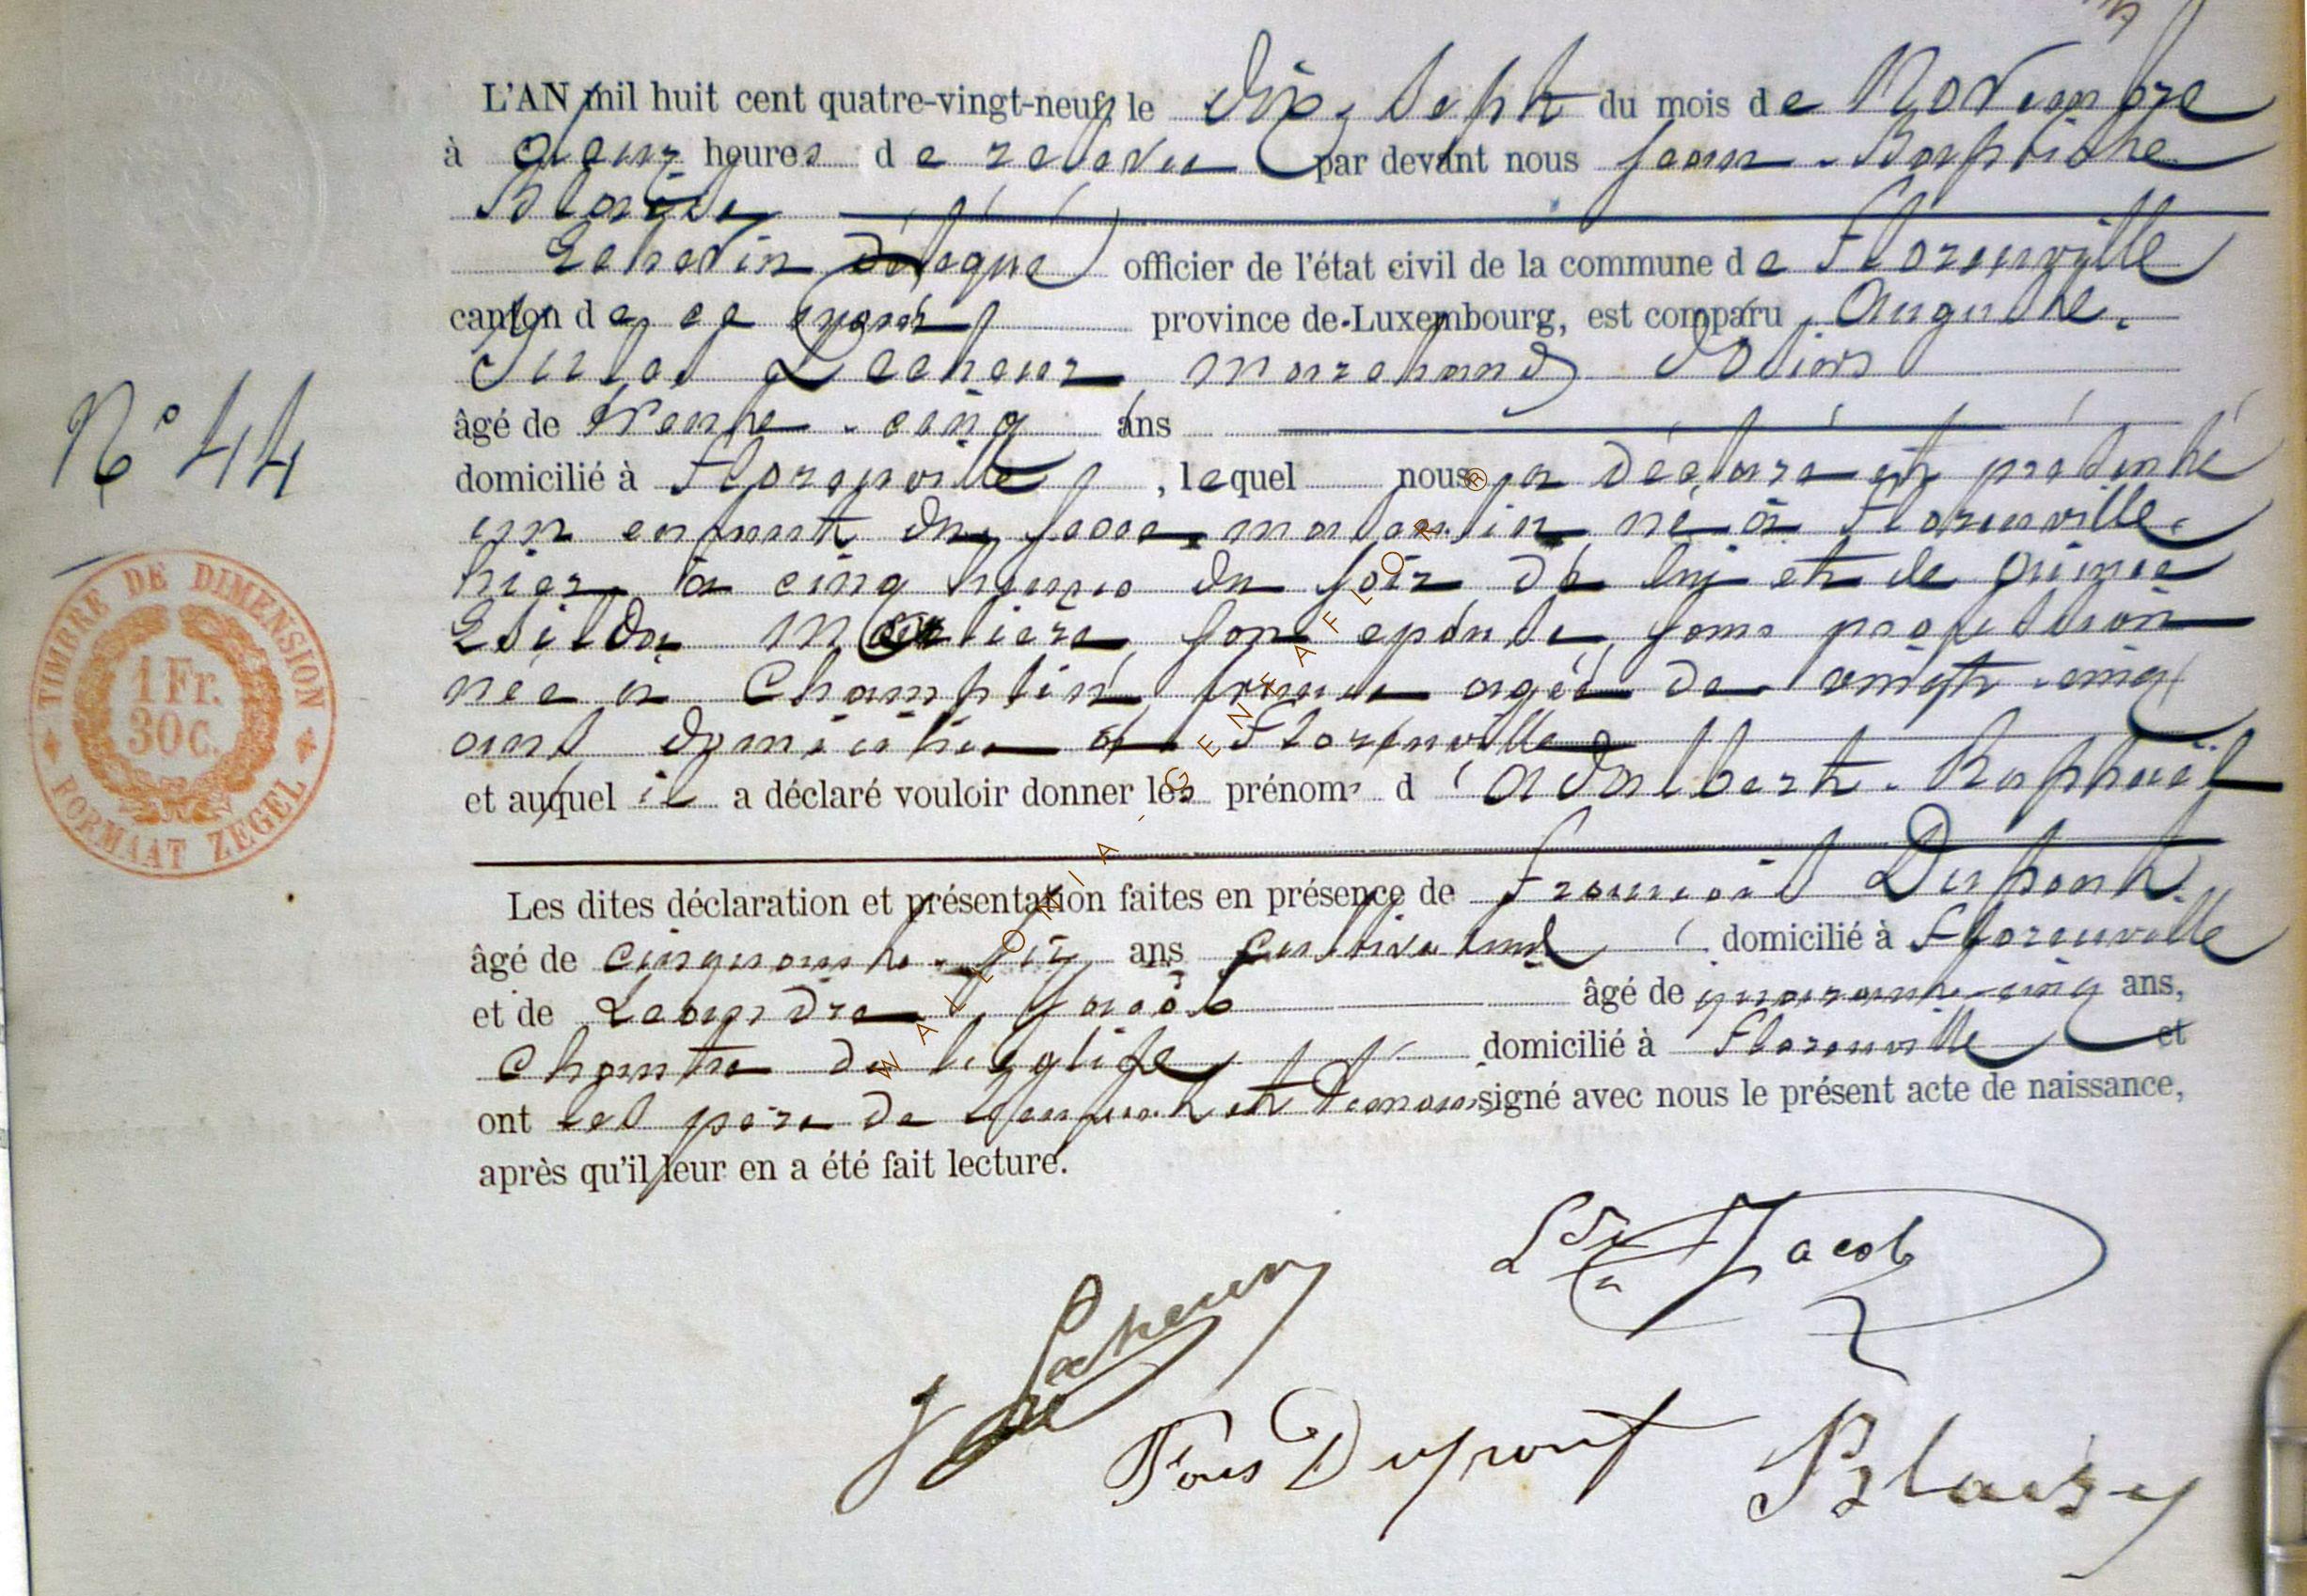 L'AN mil huit cent quatre-vingt-neuf, le dix-sept du mois de Novembre
à deux heures de relevée par devant nous Jean-Baptiste
Blaisy
Echevin délégué officier de l'état civil de la commune de Florenville
canton de ce nom province de Luxembourg, est comparu Auguste
Jules Lecheur marchand
âgé de trente-cinq ans
domicilié à Florenville, lequel nous a déclaré et présenté
un enfant du sexe masculin né à Florenville
hier à cinq heures du soir de lui et de
son épouse, sans profession
née à Champlin âgée de vingt-cinq
ans domiciliée à Florenville
et auquel il a déclaré vouloir donner les prénoms d'Adalbert-Raphaël
Les dites déclaration et présentation faites en présence de François Dupont
âgé de cinquante-six ans cultivateur domicilié à Florenville
et de Léandre Jacob âgé de quarante-cinq ans,
Chantre de l'église domicilié à Florenville et
ont les père de l'enfant et témoins signé avec nous le présent acte de naissance,
après qu'il leur en a été fait lecture.
N° 44
TIMBRE DE DIMENSION
1 Fr.
30 c.
FORMAAT ZEGEL
WALLONIA - GENEAFLOR ®
Jacob
Fois Dupont
Blaisy